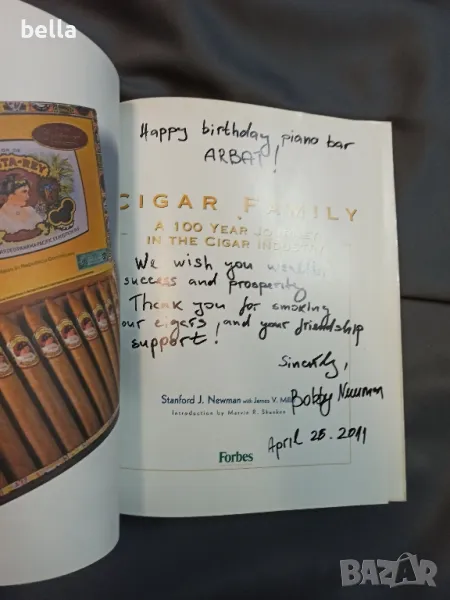 bella
Happy birthday piano bar
ARBAT!
CIGAR FAMILY
A 100 YEAR JOURNEY
IN THE CIGAR INDUSTRY
We wish you wealth,
success and prosperity
Thank you for smoking
our cigars, and your friendship
support!
Sincerely,
Bobby Newman
Stanford J. Newman with James V.
Introduction by Marvin R. Shanken
April 25. 2011
Forbes
STA-REY
BAZAR.bg